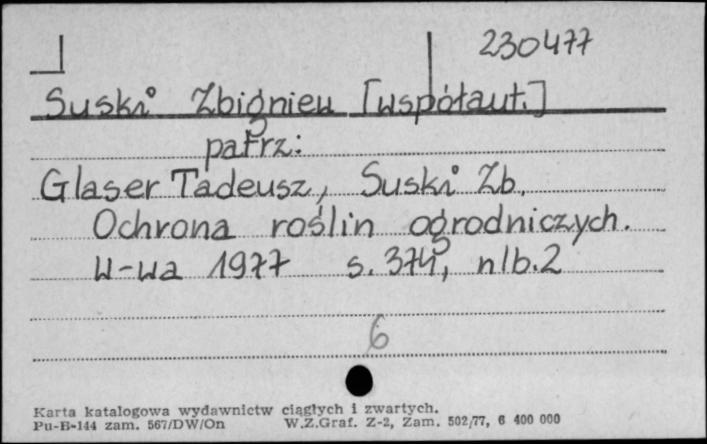 230477
Suski Zbigniew [współaut.]
patrz:
Glaser Tadeusz, Suski Zb.
Ochrona roślin ogrodniczych.
W-wa 1977 s. 374, nlb. 2
6
Karta katalogowa wydawnictw ciągłych i zwartych.
Pu-B-144 zam. 567/DW/On W.Z.Graf. Z-2, Zam. 502/77, 6 400 000